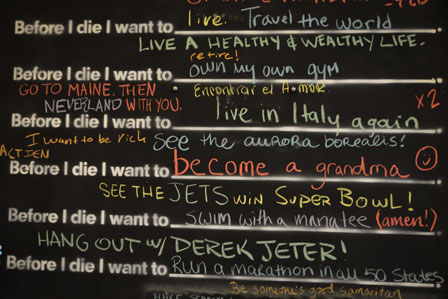 Before I die I want to live. Travel the world
LIVE A HEALTHY & WEALTHY LIFE.
retire!
Before I die I want to own my own gym
GO TO MAINE. THEN
Encontrar el Amor
NEVERLAND WITH YOU.
x2
Before I die I want to live in Italy again
I want to be rich
See the aurora borealis!
ACTIEN
Before I die I want to become a grandma
SEE THE JETS WIN SUPER BOWL!
Before I die I want to swim with a manatee (amen!)
HANG OUT w/ DEREK JETER!
Before I die I want to Run a marathon in all 50 States
Be someone's good samaritan